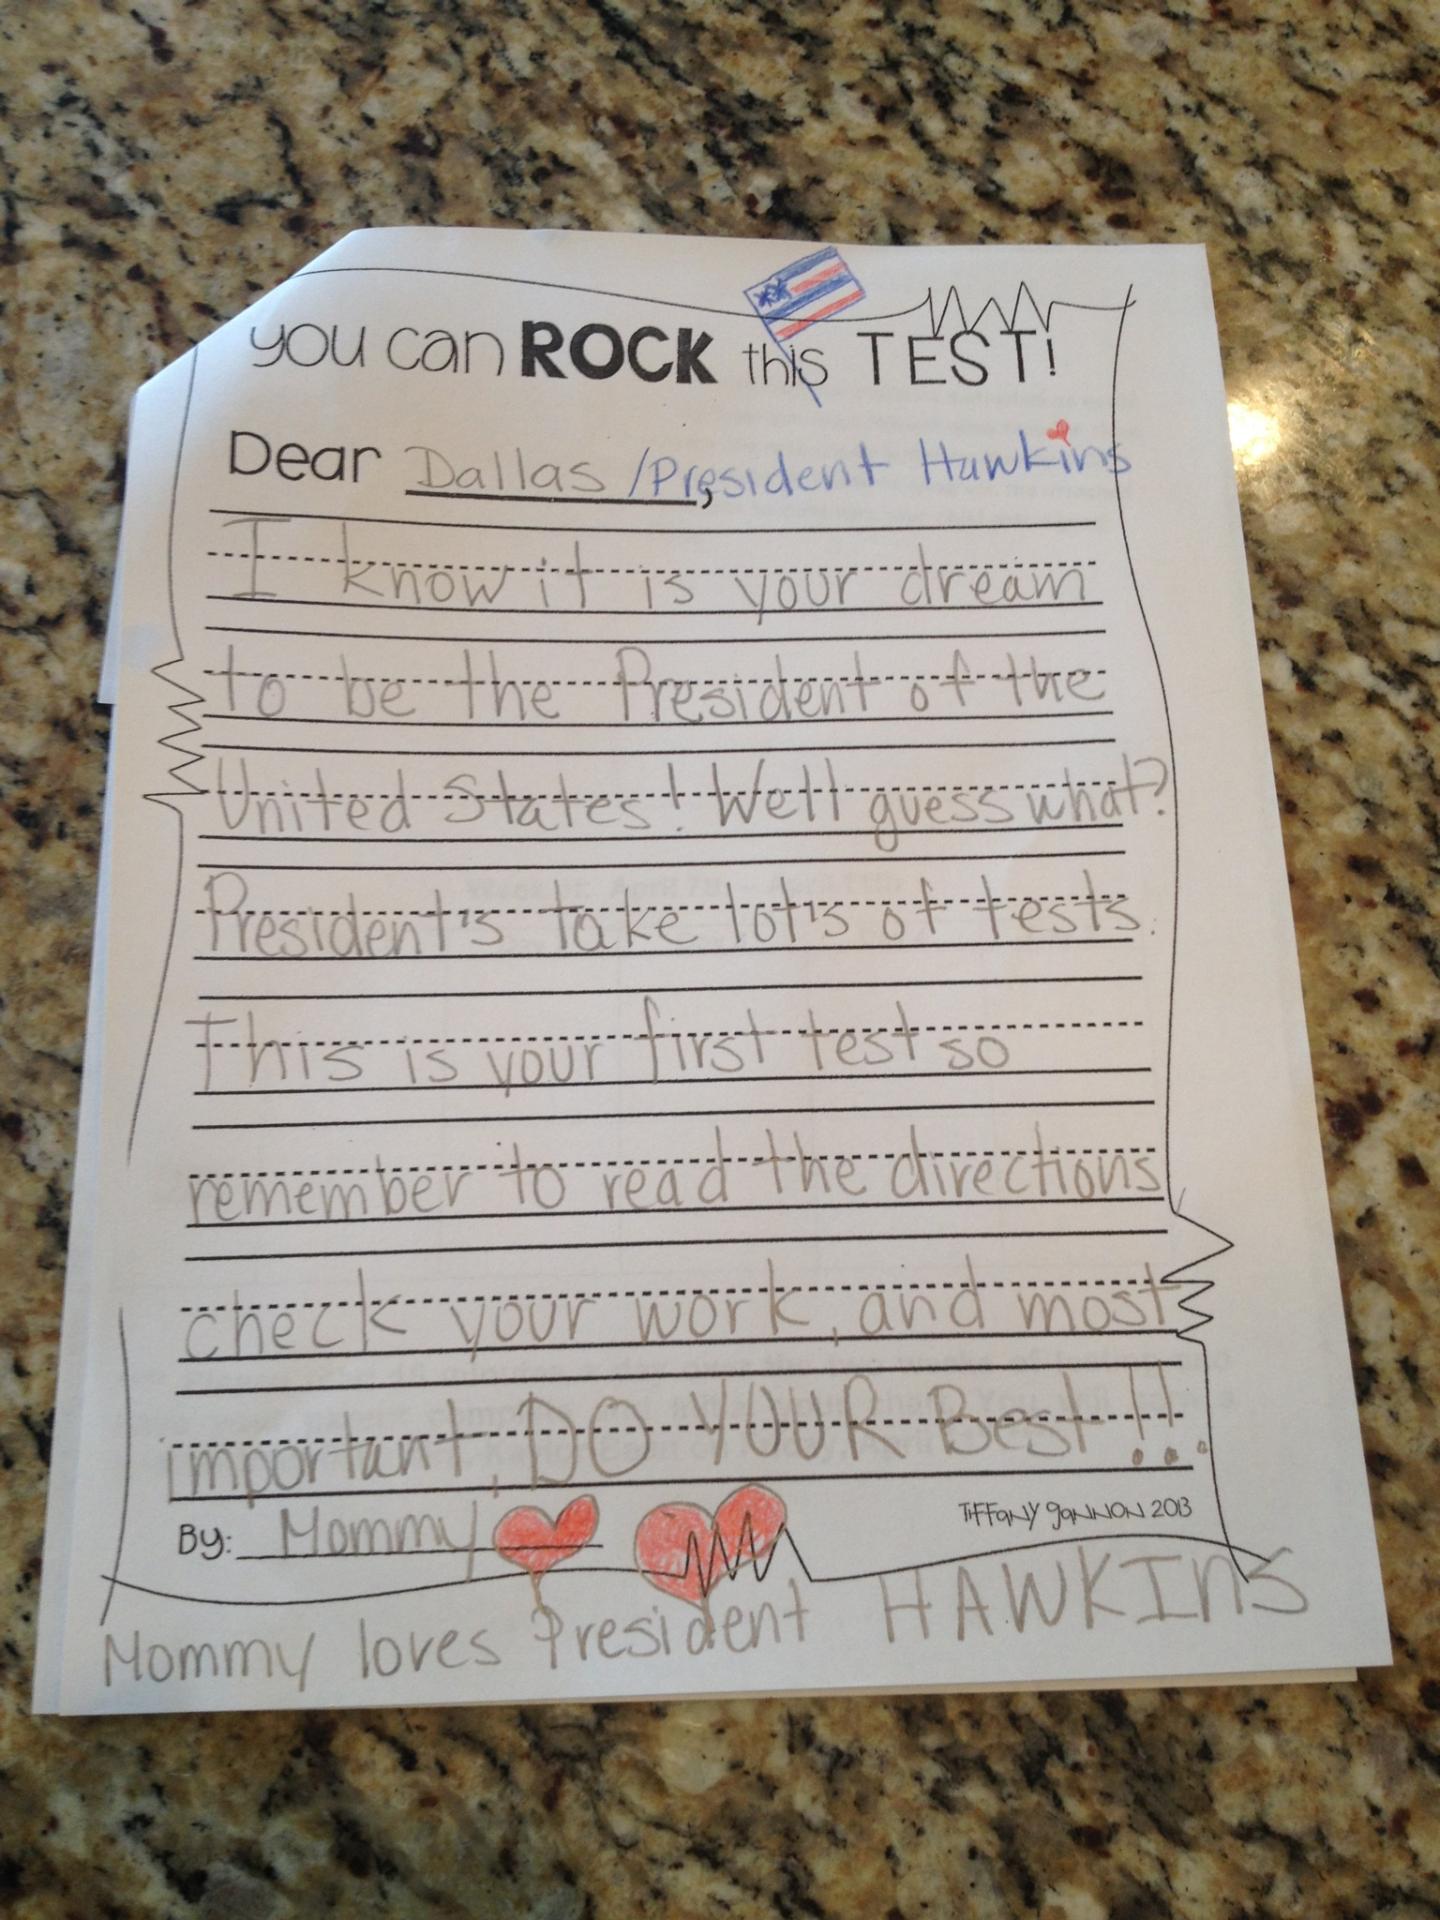 you can ROCK this TEST!
Dear Dallas, /President Hawkins
I know it is your dream
to be the President of the
United States! Well guess what?
President's take lot's of tests.
This is your first test so
remember to read the directions
check your work, and most
important, DO YOUR Best!!.
By: Mommy
TIFFANY GANNON 2013
Mommy loves President HAWKINS